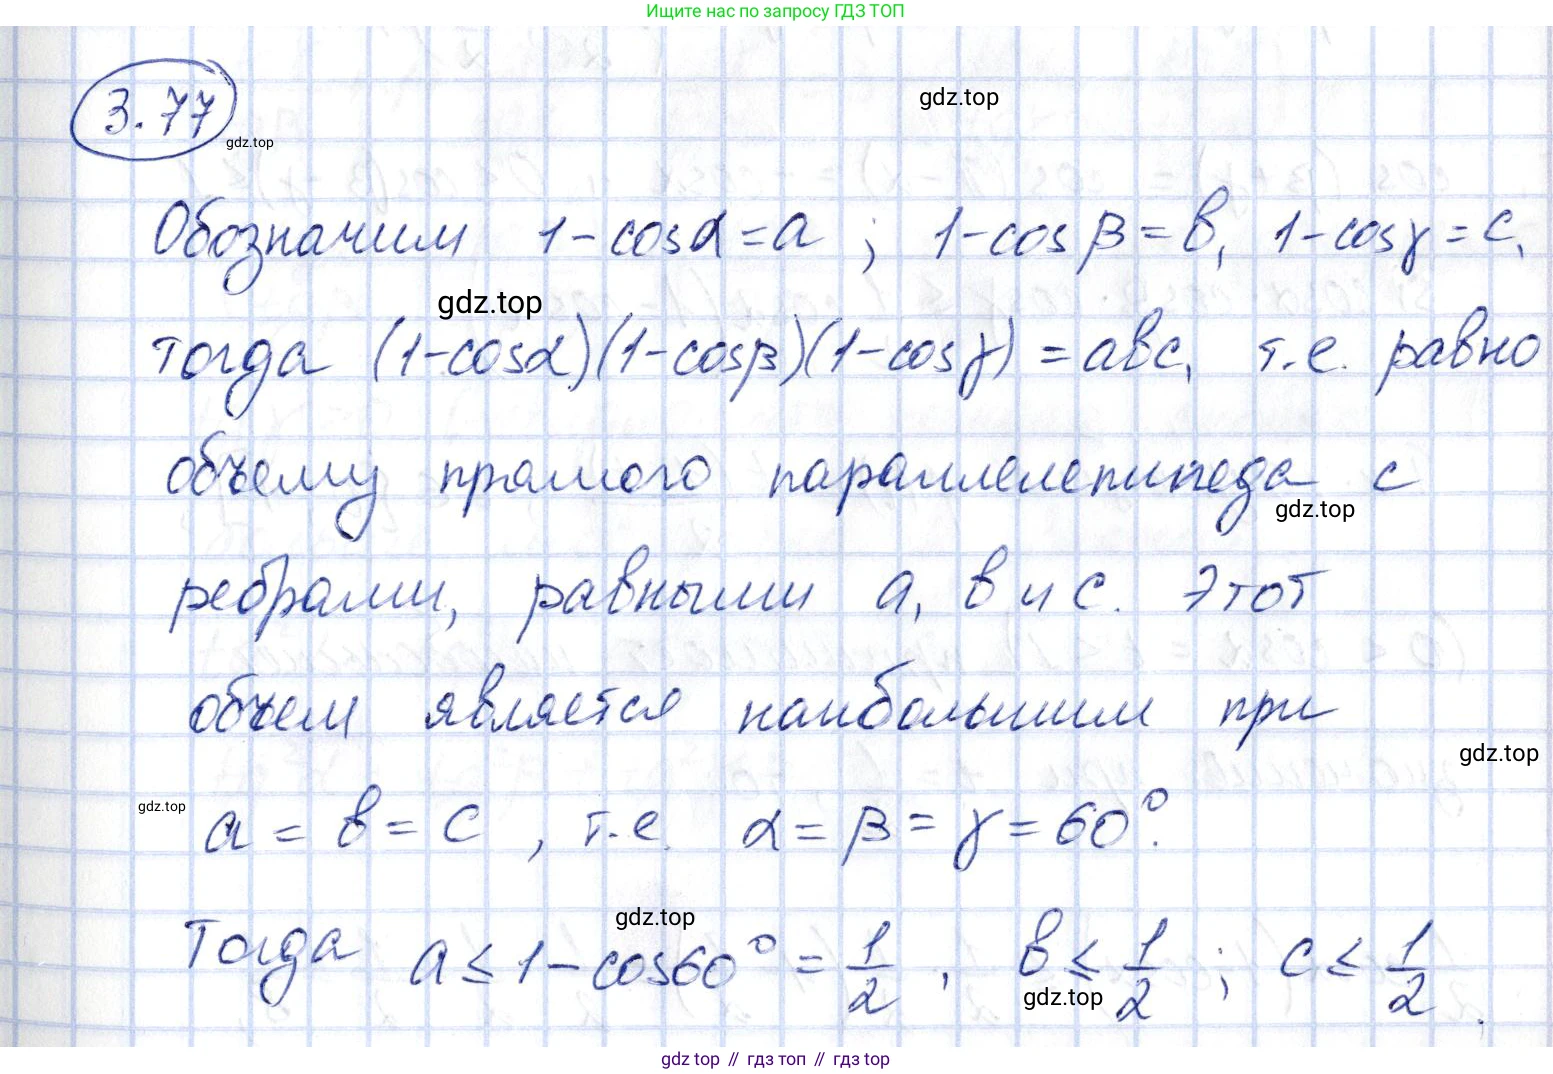 Ищите нас по запросу ГДЗ ТОП
3.77
gdz.top
gdz.top
Обозначим 1-cosα=a ; 1-cosβ=b, 1-cosγ=c,
gdz.top
тогда (1-cosα)(1-cosβ)(1-cosγ) = abc, т.е. равно
объему прямого параллелепипеда с
gdz.top
ребрами, равными a, b и c. Этот
объем является наибольшим при
gdz.top
gdz.top
a = b = c , т.е. α = β = γ = 60°.
gdz.top
Тогда a ≤ 1 - cos60° = 1/2 , b ≤ 1/2 ; c ≤ 1/2 .
gdz.top
gdz top // гдз топ // gdz top